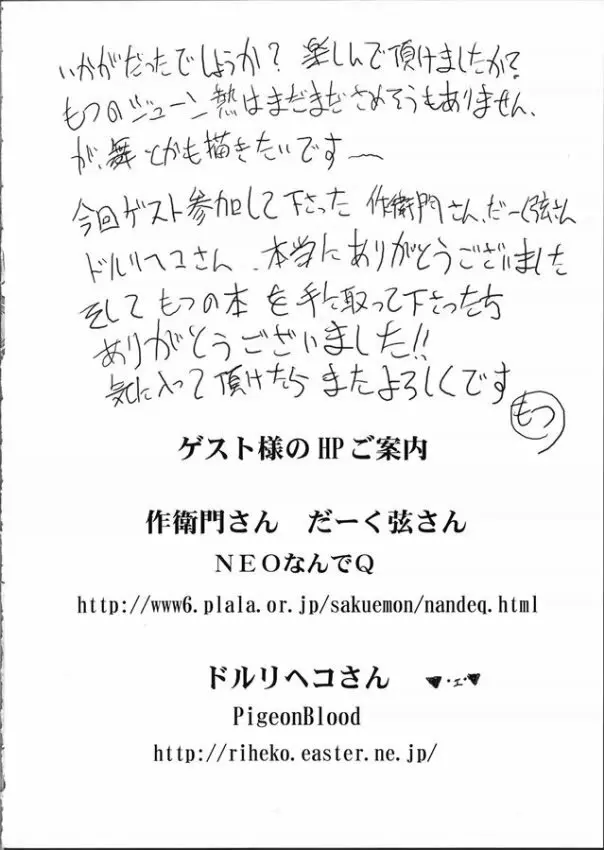 いかがだったでしょうか? 楽しんで頂けましたか?
もつのジューン熱はまだまださめそうもありません、
が、舞とかも描きたいです〜
今回ゲスト参加して下さった 作衛門さん、だーく弦さん
ドルリヘコさん、本当にありがとうございました
そして もつの本 を手に取って下さったち
ありがとうございました!!
気に入って頂けたら またよろしくです
もつ
ゲスト様のHPご案内
作衛門さん だーく弦さん
NEOなんでQ
http://www6.plala.or.jp/sakuemon/nandeq.html
ドルリヘコさん ▼・ェ・▼
PigeonBlood
http://riheko.easter.ne.jp/